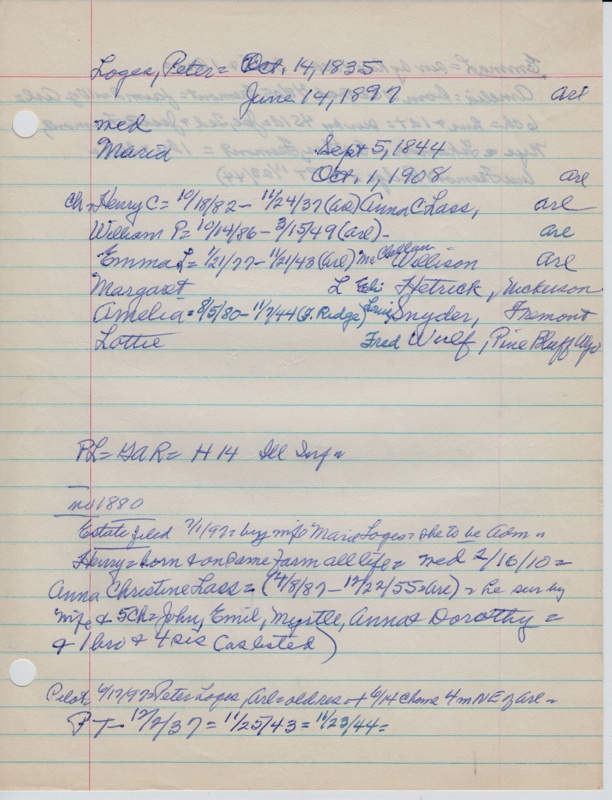 Loges, Peter = Oct. 14, 1835
June 14, 1897 Arl
med
Maria Sept 5, 1844
Oct. 1, 1908 Arl
Ch = Henry C = 10/18/82 - 11/24/37 (Arl) Anna C Lass, Arl
William P = 10/14/86 - 3/15/49 (Arl) - Arl
Emma L = 1/21/77 - 11/21/43 (Arl) McClellan Willison Arl
Margaret L Eli Hetrick, Nickerson
Amelia = 8/5/80 - 11/7/44 (F. Ridge) Louis Snyder, Fremont
Lottie Fred Wulf, Pine Bluff Wyo
PL = GAR = H 14 Ill Inf =
no 1880
Estate filed 7/1/97 = by wife Maria Loges = she to be Adm =
Henry = born & on same farm all life = med 2/16/10 =
Anna Christine Lass = ( /8/87 - 12/22/55 = Arl) = he sur by
wife & 5 Ch = John, Emil, Myrtle, Anna & Dorothy =
& 1 bro & 4 sis (as listed)
Pilot 6/17/97 = Peter Loges, Arl = old res = + 6/14 @ home 4 m NE of Arl =
P T - 12/2/37 = 11/25/43 = 11/23/44 =